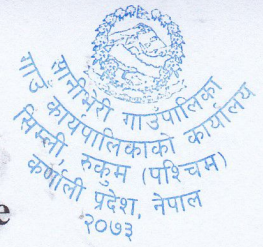 सानीभेरी गाउँपालिका
गाउँ कार्यपालिकाको कार्यालय
सिम्ली, रुकुम (पश्चिम)
कर्णाली प्रदेश, नेपाल
२०७३
e